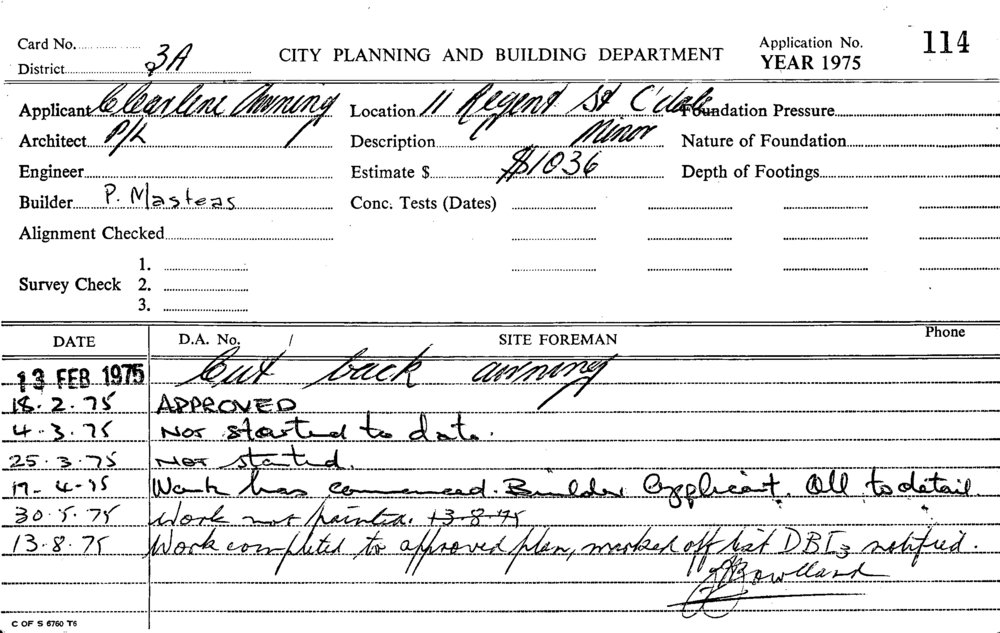 Card No.
District 3A
CITY PLANNING AND BUILDING DEPARTMENT
Application No. 114
YEAR 1975
Applicant Clearline Awning Location 11 Regent St C'dale Foundation Pressure
Architect P/L Description Minor Nature of Foundation
Engineer Estimate $ $1036 Depth of Footings
Builder P. Masters Conc. Tests (Dates)
Alignment Checked
Survey Check 1.
2.
3.
DATE D.A. No. / SITE FOREMAN Phone
13 FEB 1975 Cut back awning
18.2.75 APPROVED
4.3.75 Not started to date.
25.3.75 Not started.
17-4-75 Work has commenced. Builder Applicant. All to detail
30.5.75 Work not painted. 13-8-75
13.8.75 Work completed to approved plan, marked off list DBI3 notified.
Bowlland
C OF S 6760 T6